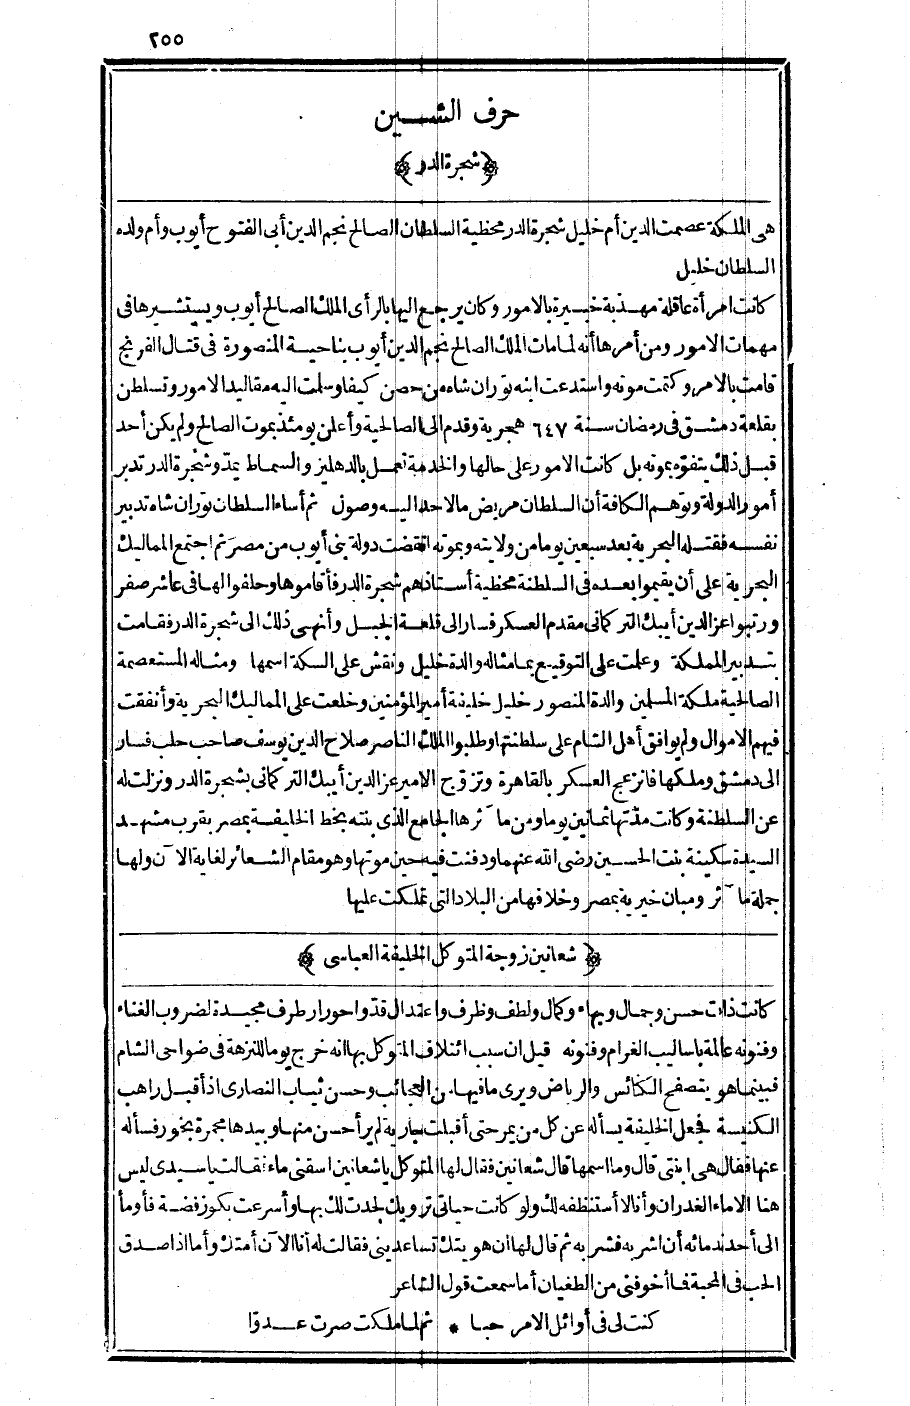 ٢٥٥
حرف الشين
﴿شجرة الدر﴾
هى الملكة عصمت الدين أم خليل شجرة الدر محظية السلطان الصالح نجم الدين أبى الفتوح أيوب وأم ولده
السلطان خليل
كانت امرأة عاقلة مهذبة خبيرة بالامور وكان يرجع اليها بالرأى الملك الصالح أيوب ويستشيرها فى
مهمات الامور ومن أمرها أنه لما مات الملك الصالح نجم الدين أيوب بناحية المنصورة فى قتال الفرنج
قامت بالامر وكتمت موته واستدعت ابنه توران شاه من حصن كيفا وسلمت اليه مقاليد الامور وتسلطن
بقلعة دمشق فى رمضان سنة ٦٤٧ هجرية وقدم الى الصالحية وأعلن يومئذ بموت الصالح ولم يكن أحد
قبل ذلك يتفوّه بموته بل كانت الامور على حالها والخدمة تعمل بالدهليز والسماط يمدّ وشجرة الدر تدبر
أمور الدولة وتوهم الكافة أن السلطان مريض ما لاحد اليه وصول ثم أساء السلطان توران شاه تدبير
نفسه فقتله البحرية بعد سبعين يوما من ولايته وبموته انقضت دولة بنى أيوب من مصر ثم اجتمع المماليك
البحرية على أن يقيموا بعده فى السلطنة محظية أستاذهم شجرة الدر فأقاموها وحلفوا لها فى عاشر صفر
ورتبوا عز الدين أيبك التركمانى مقدم العسكر فسار الى قلعة الجبل وأنهى ذلك الى شجرة الدر فقامت
بتدبير المملكة وعلمت على التوقيع بما مثاله والدة خليل ونقش على السكة اسمها ومثاله المستعصمة
الصالحية ملكة المسلمين والدة المنصور خليل خليفة أمير المؤمنين وخلعت على المماليك البحرية وأنفقت
فيهم الاموال ولم يوافق أهل الشام على سلطنتها وطلبوا الملك الناصر صلاح الدين يوسف صاحب حلب فسار
الى دمشق وملكها فانزعج العسكر بالقاهرة وتزوّج الامير عز الدين أيبك التركمانى بشجرة الدر ونزلت له
عن السلطنة وكانت مدّتها ثمانين يوما ومن مآثرها الجامع الذى بنته بخط الخليفة بمصر بقرب مشهد
السيدة سكينة بنت الحسين رضى الله عنهما ودفنت فيه حين موتها وهو مقام الشعائر لغاية الآن ولها
جملة مآثر ومبان خيرية بمصر وخلافها من البلاد التى تملكت عليها
﴿شعانين زوجة المتوكل الخليفة العباسى﴾
كانت ذات حسن وجمال وبهاء وكمال ولطف وظرف واعتدال قدّ واحورار طرف مجيدة لضروب الغناء
وفنونه عالمة باساليب الغرام وفنونه قيل ان سبب ائتلاف المتوكل بها انه خرج يوما للنزهة فى ضواحى الشام
فبينما هو يتصفح الكنائس والرياض ويرى ما فيها من العجائب وحسن ثياب النصارى اذ أقبل راهب
الكنيسة فجعل الخليفة يسأله عن كل من يمر حتى أقبلت جارية لم ير أحسن منها وبيدها مجمرة بخور فسأله
عنها فقال هى ابنتى قال وما اسمها قال شعانين فقال لها المتوكل يا شعانين اسقنى ماء فقالت يا سيدى ليس
هنا الا ماء الغدران وأنا لا أستنظفه لك ولو كانت حياتى ترويك لجدت لك بها وأسرعت بكوز فضة فأومأ
الى أحد ندمائه أن اشربه فشربه ثم قال لها ان هويتك تساعدينى فقالت له أنا الآن أمتك وأما اذا صدق
الحب فى المحبة فما أخوفنى من الطغيان أما سمعت قول الشاعر
كنت لى فى أوائل الامر حبا * ثم لما ملكت صرت عدوّا